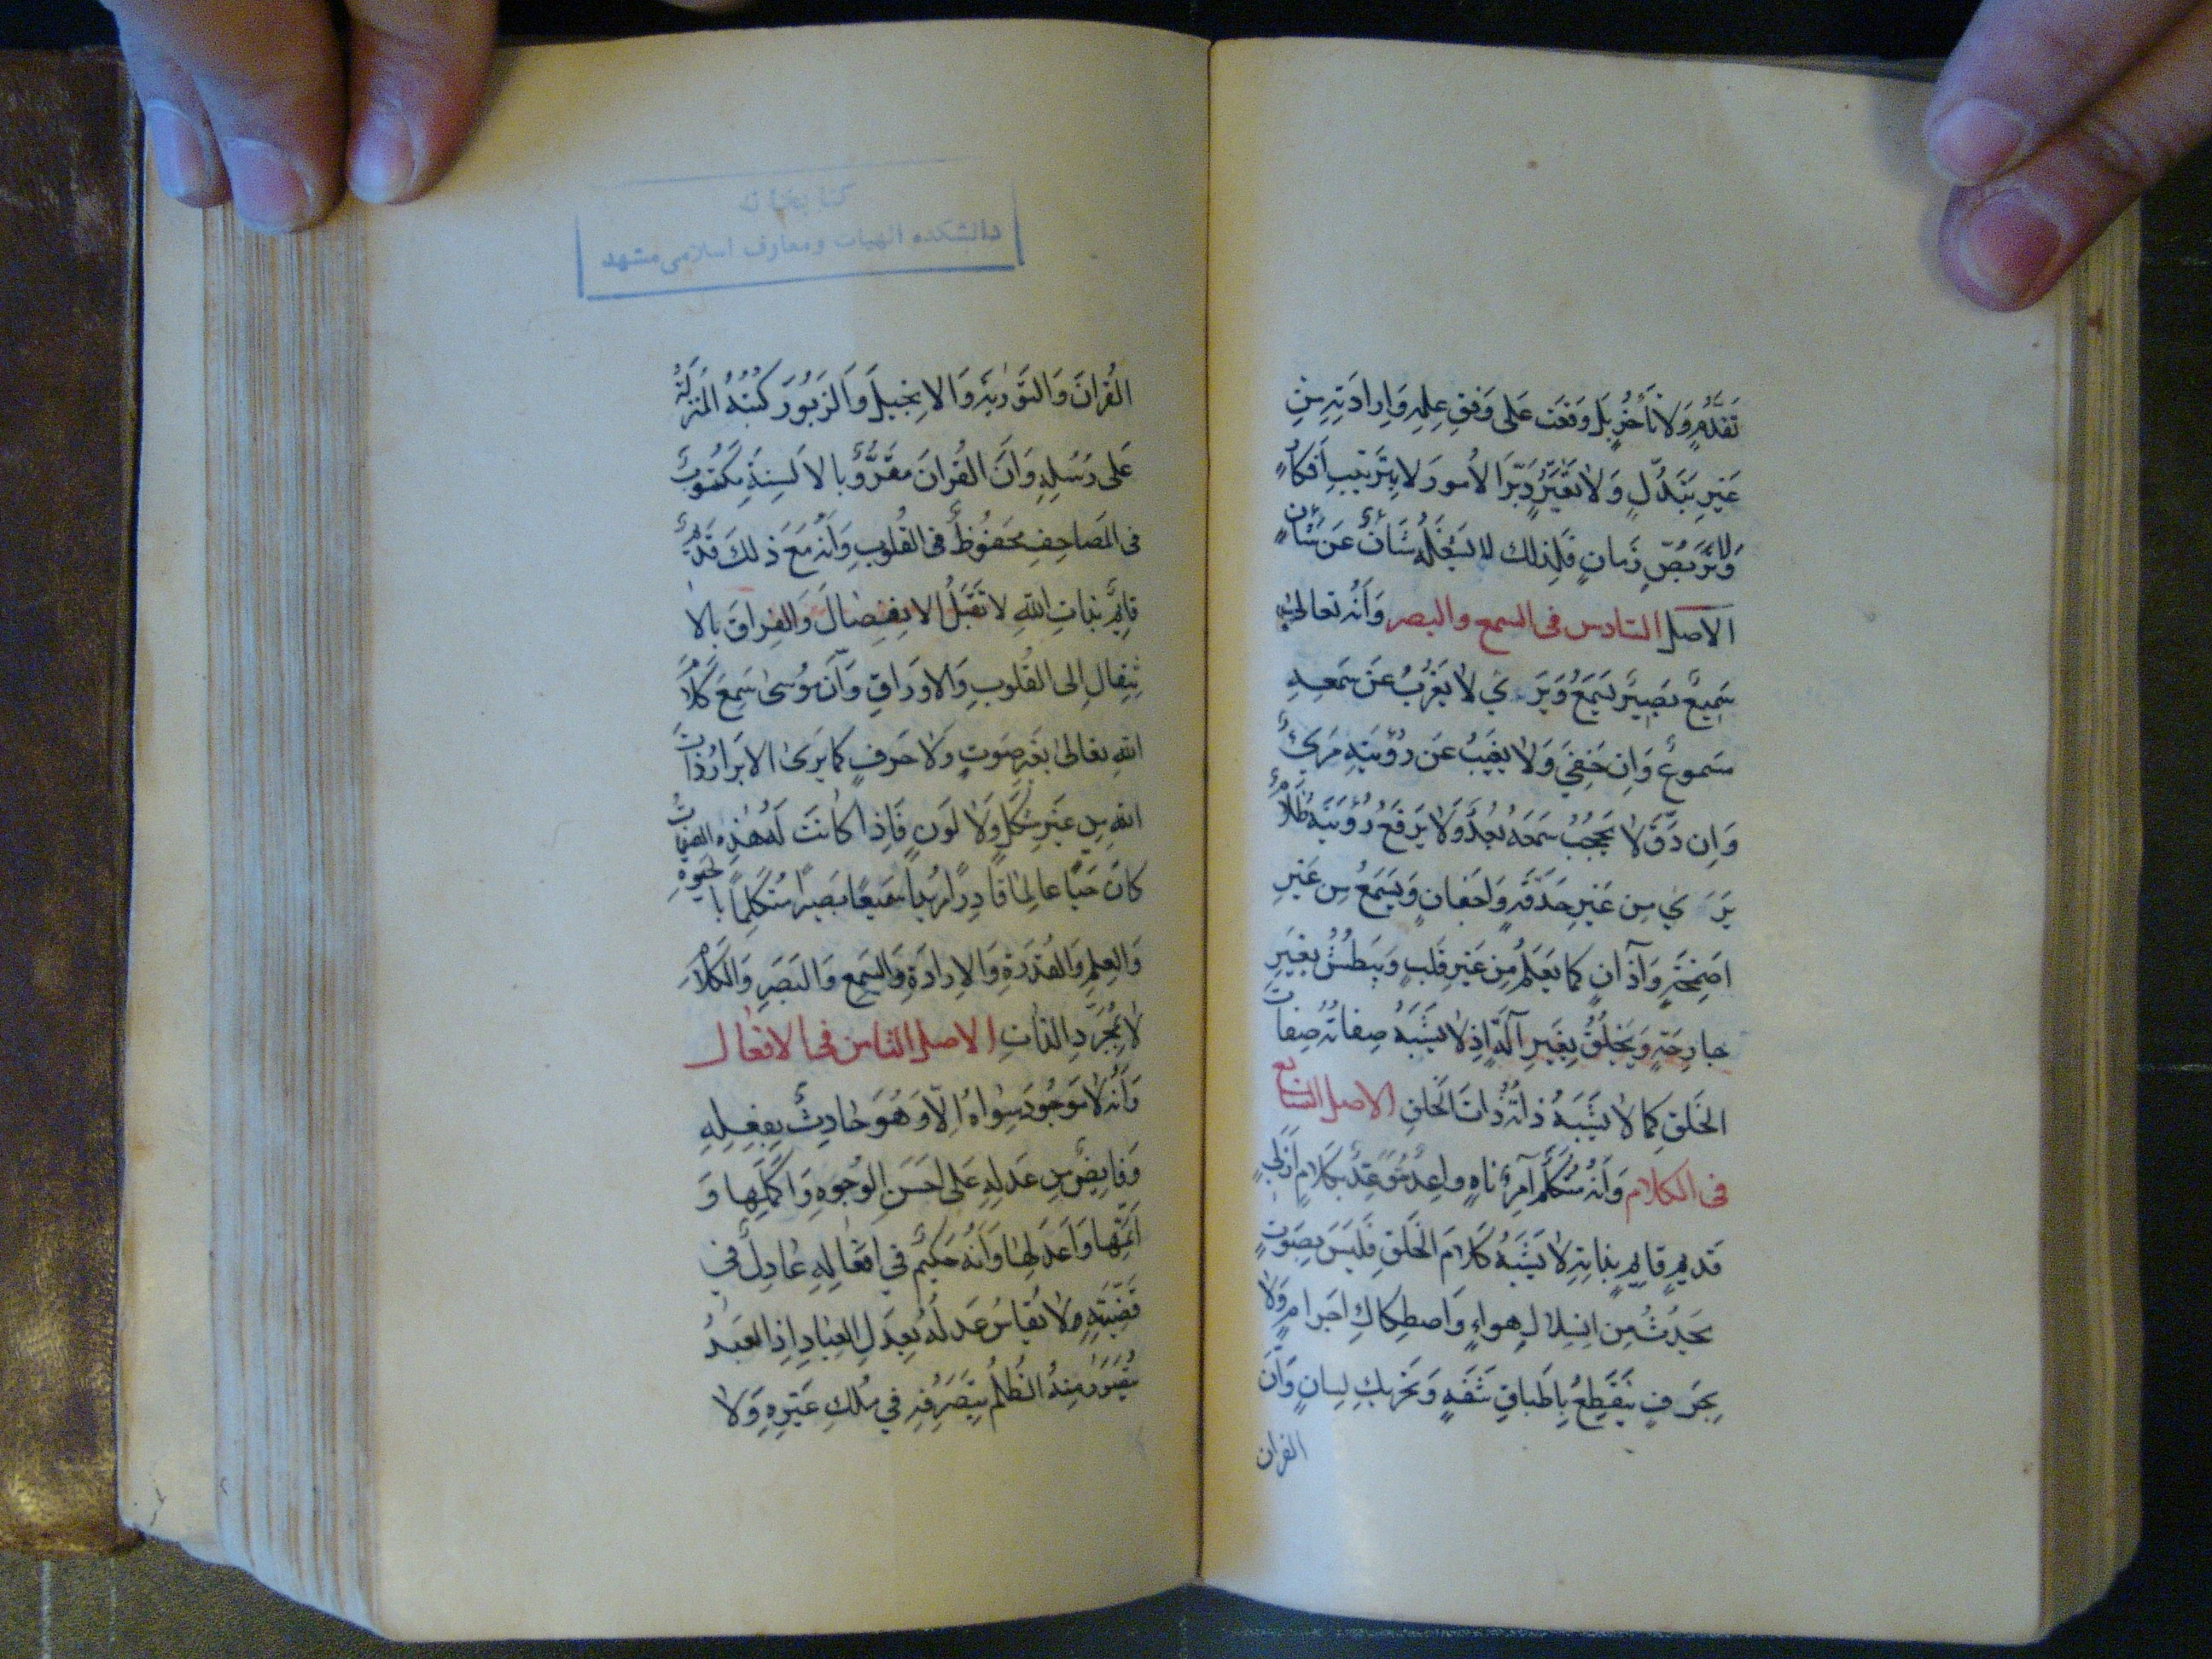 تَقَدُّمٍ وَلَا تَأَخُّرٍ بَل وَقَعَت عَلى وَفقِ عِلمِهِ وَاِرادَتِهِ مِن
غَيرِ تَبَدُّلٍ وَلَا تَغَيُّرٍ دَبَّرَ الاُمورَ لا بِتَرتيبِ اَفكارٍ
وَلا تَرَبُّصِ زَمانٍ فَلِذلك لم يَشغَلهُ شَانٌ عَن شَانٍ
الاصل السادس فى السمع والبصر وَأنّهُ تعالى
سَميعٌ بَصيرٌ يَسمَعُ وَيَرَي لا يَعْزُبُ عَن سَمعِهِ
مَسموعٌ وَاِن خَفِيَ وَلا يَغيبُ عَن رُؤيَتِهِ مَرئيٌّ
وَاِن دَقَّ لا يَحجُبُ سَمعَهُ بُعدٌ وَلا يَدفَعُ رُؤيَتَهُ ظَلامٌ
يَرَي مِن غَيرِ حَدَقَةٍ وَاَجفانٍ وَيَسمَعُ مِن غَيرِ
اَصمِخَةٍ وَآذانٍ كما يَعلَمُ مِن غَيرِ قَلبٍ وَيَبطُشُ بِغَيرِ
جارِحَةٍ وَيَخلُقُ بِغَيرِ آلَةٍ اِذ لا يُشبِهُ صِفاتُهُ صِفاتَ
الخَلقِ كما لا يُشبِهُ ذاتُهُ ذاتَ الخَلقِ الاصل السابع
فى الكلام وَأنّهُ مُتَكَلِّمٌ آمِرٌ ناهٍ واعِدٌ مُتَوَعِّدٌ بِكَلامٍ اَزَلِيٍّ
قَديمٍ قايِمٍ بِذاتِهِ لا يُشبِهُ كَلامَ الخَلقِ فَلَيسَ بِصَوتٍ
يَحدُثُ مِن انسِلالِ هواءٍ وَاصطِكاكِ اجرامٍ وَلا
بِحَرفٍ يَنقَطِعُ بِاِطباقِ شَفَةٍ وَتَحريكِ لِسانٍ وَاَنَّ
القران
كتابخانه
دانشكده الهيات ومعارف اسلامى مشهد
القُرانَ وَالتَّورٰيةَ وَالاِنجيلَ وَالزَبُورَ كُتُبُهُ المُنزَلَةُ
عَلى رُسُلِهِ وَاَنَّ القُرانَ مَقرُوٌّ بِالاَلسِنَةِ مَكتُوبٌ
فى المَصاحِفِ مَحفُوظٌ فى القُلوبِ وَاَنَّهُ مَعَ ذلكَ قَديمٌ
قايِمٌ بِذاتِ اللهِ لا تَقبَلُ الاِنفِصالَ وَالفِراقَ بِالا
نتِقالِ اِلى القُلوبِ وَالاَوراقِ وَاَنَّ مُوسىٰ سَمِعَ كَلامَ
اللهِ تعالىٰ بِغَيرِ صَوتٍ وَلا حَرفٍ كما يَرىَ الاَبرارُ ذاتَ
اللهِ مِن غَيرِ شَكلٍ وَلا لَونٍ فَاِذا كانَت لَهُ هذِهِ الصِفاتُ
كانَ حَيًّا عالِمًا قادِرًا مُريدًا سَميعًا بَصيرًا مُتَكَلِّمًا بِالحَيوةِ
وَالعِلمِ وَالقُدرَةِ وَالاِرادَةِ وَالسَّمعِ وَالبَصَرِ وَالكَلامِ
لا بِمُجَرَّدِ الذّاتِ الاصل الثامن فى الافعال
وَأنّهُ لا مَوجُودَ سِواهُ اِلّا وَهُوَ حادِثٌ بِفِعلِهِ
وَفايِضٌ مِن عَدلِهِ عَلى اَحسَنِ الوُجُوهِ وَاَكمَلِها وَ
اَتَمِّها وَاَعدَلِها وَاَنَّهُ حَكيمٌ في اَفعالِهِ عادِلٌ في
اَقضِيَتِهِ وَلا يُقاسُ عَدلُهُ بِعَدلِ العِبادِ اِذِ العَبدُ
يُتَصَوَّرُ مِنهُ الظُلمُ بِتَصَرُّفِهِ في مُلكِ غَيرِهِ وَلا